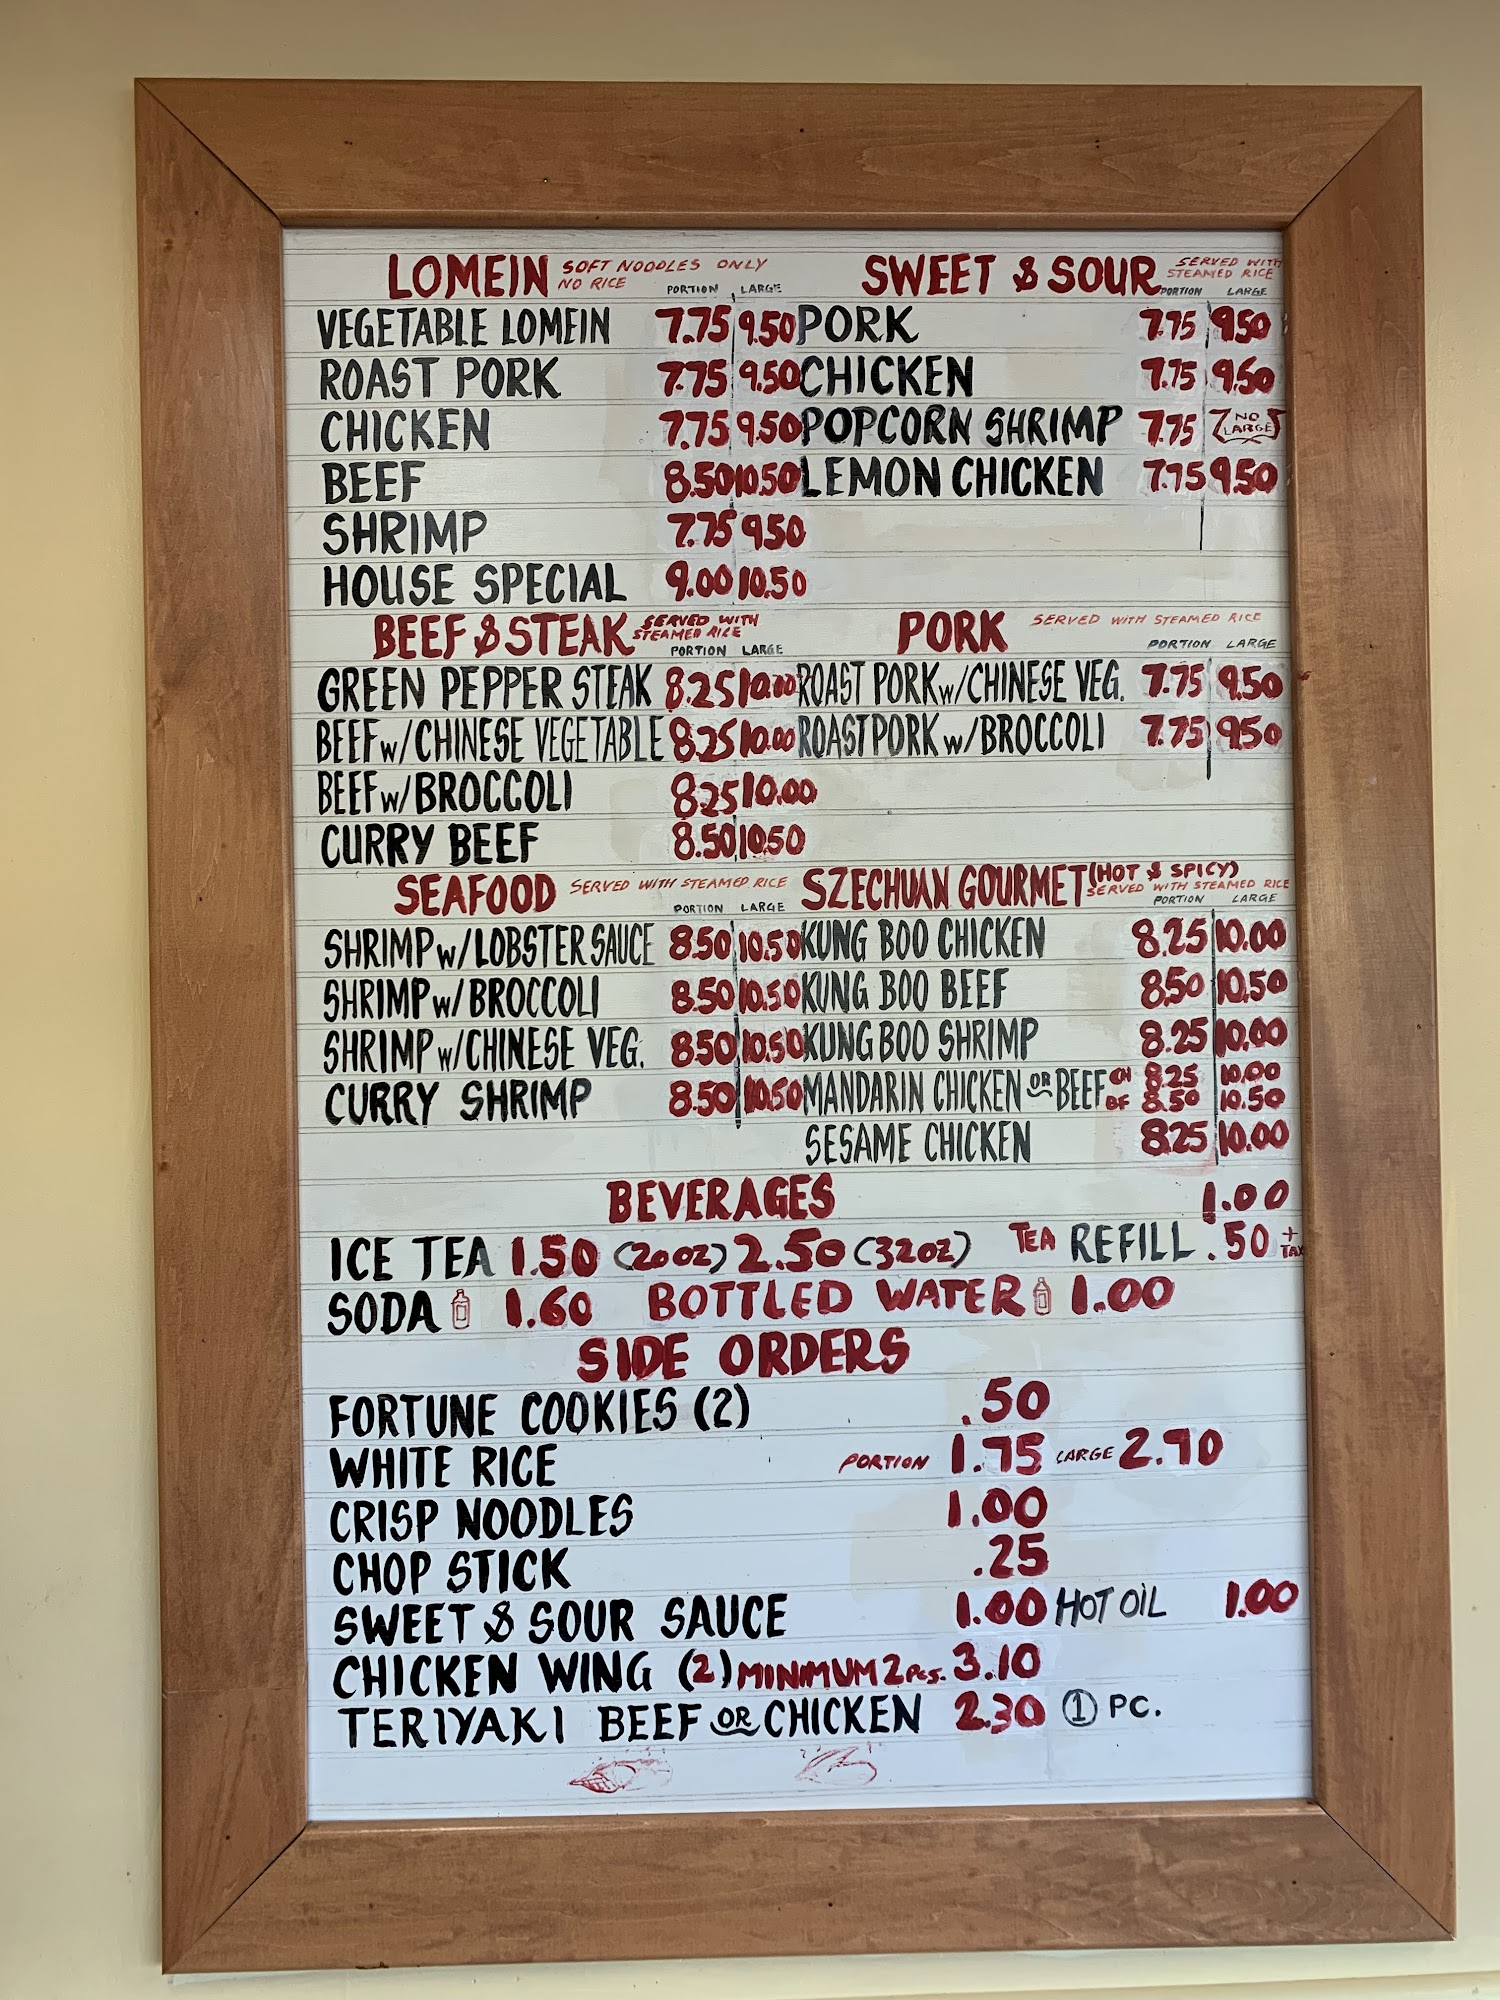 LOMEIN SOFT NOODLES ONLY
NO RICE
PORTION LARGE
VEGETABLE LOMEIN 7.75 9.50
ROAST PORK 7.75 9.50
CHICKEN 7.75 9.50
BEEF 8.50 10.50
SHRIMP 7.75 9.50
HOUSE SPECIAL 9.00 10.50
SWEET & SOUR SERVED WITH
STEAMED RICE
PORTION LARGE
PORK 7.75 9.50
CHICKEN 7.75 9.50
POPCORN SHRIMP 7.75 NO
LARGE
LEMON CHICKEN 7.75 9.50
BEEF & STEAK SERVED WITH
STEAMED RICE
PORTION LARGE
GREEN PEPPER STEAK 8.25 10.00
BEEF w/CHINESE VEGETABLE 8.25 10.00
BEEF w/BROCCOLI 8.25 10.00
CURRY BEEF 8.50 10.50
PORK SERVED WITH STEAMED RICE
PORTION LARGE
ROAST PORK w/CHINESE VEG. 7.75 9.50
ROAST PORK w/BROCCOLI 7.75 9.50
SEAFOOD SERVED WITH STEAMED RICE
PORTION LARGE
SHRIMP w/LOBSTER SAUCE 8.50 10.50
SHRIMP w/BROCCOLI 8.50 10.50
SHRIMP w/CHINESE VEG. 8.50 10.50
CURRY SHRIMP 8.50 10.50
SZECHUAN GOURMET (HOT & SPICY)
SERVED WITH STEAMED RICE
PORTION LARGE
KUNG BOO CHICKEN 8.25 10.00
KUNG BOO BEEF 8.50 10.50
KUNG BOO SHRIMP 8.25 10.00
MANDARIN CHICKEN OR BEEF CH 8.25 10.00
BF 8.50 10.50
SESAME CHICKEN 8.25 10.00
BEVERAGES 1.00
ICE TEA 1.50 (20oz) 2.50 (32oz) TEA REFILL .50 + TAX
SODA 1.60 BOTTLED WATER 1.00
SIDE ORDERS
FORTUNE COOKIES (2) .50
WHITE RICE PORTION 1.75 LARGE 2.70
CRISP NOODLES 1.00
CHOP STICK .25
SWEET & SOUR SAUCE 1.00 HOT OIL 1.00
CHICKEN WING (2) MINIMUM 2 PCS. 3.10
TERIYAKI BEEF OR CHICKEN 2.30 1 PC.